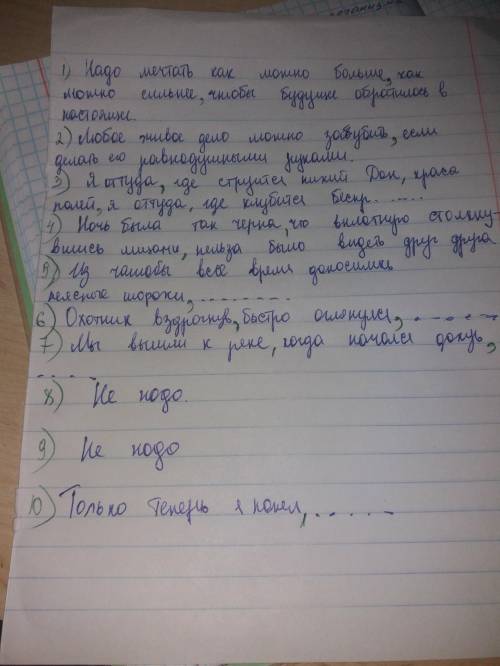 1) Надо мечтать как можно больше, как
можно сильнее, чтобы будущее обратилось в
настоящее.
2) Любое живое дело можно загубить, если
делать его равнодушными руками.
3) Я оттуда, где струится тихий Дон, краса
полей, я оттуда, где клубится бескр. . . . . .
4) Ночь была так черна, что вплотную столкну-
вшись лицами, нельзя было видеть друг друга
5) Из чащобы всё время доносились
неясные шорохи, . . . . . . . .
6) Охотник вздрогнув, быстро оглянулся, . . . . . .
7) Мы вышли к реке, когда начался дождь,
. . . .
8) Не надо.
9) Не надо
10) Только теперь я понял, . . . . . .